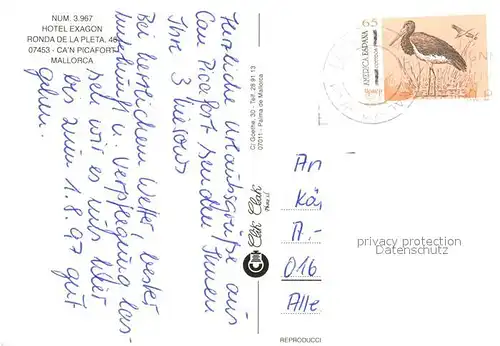 NUM. 3.967
HOTEL EXAGON
RONDA DE LA PLETA, 46
07453 - CA'N PICAFORT
MALLORCA
Herzliche Urlaubsgrüße aus
Can Picafort senden Ihnen
Ihre 3
Bei herrlichem Wetter, bester
Unterkunft u. Verpflegung las-
sen wir es uns hier
bis zum 1.8.97 gut
gehen.
C/ Goethe, 30 - Tel. 28 91 13
07011 - Palma de Mallorca
Clik Clak
65
An
A.-
016
Alle
privacy protection
watermark
REPRODUCCI